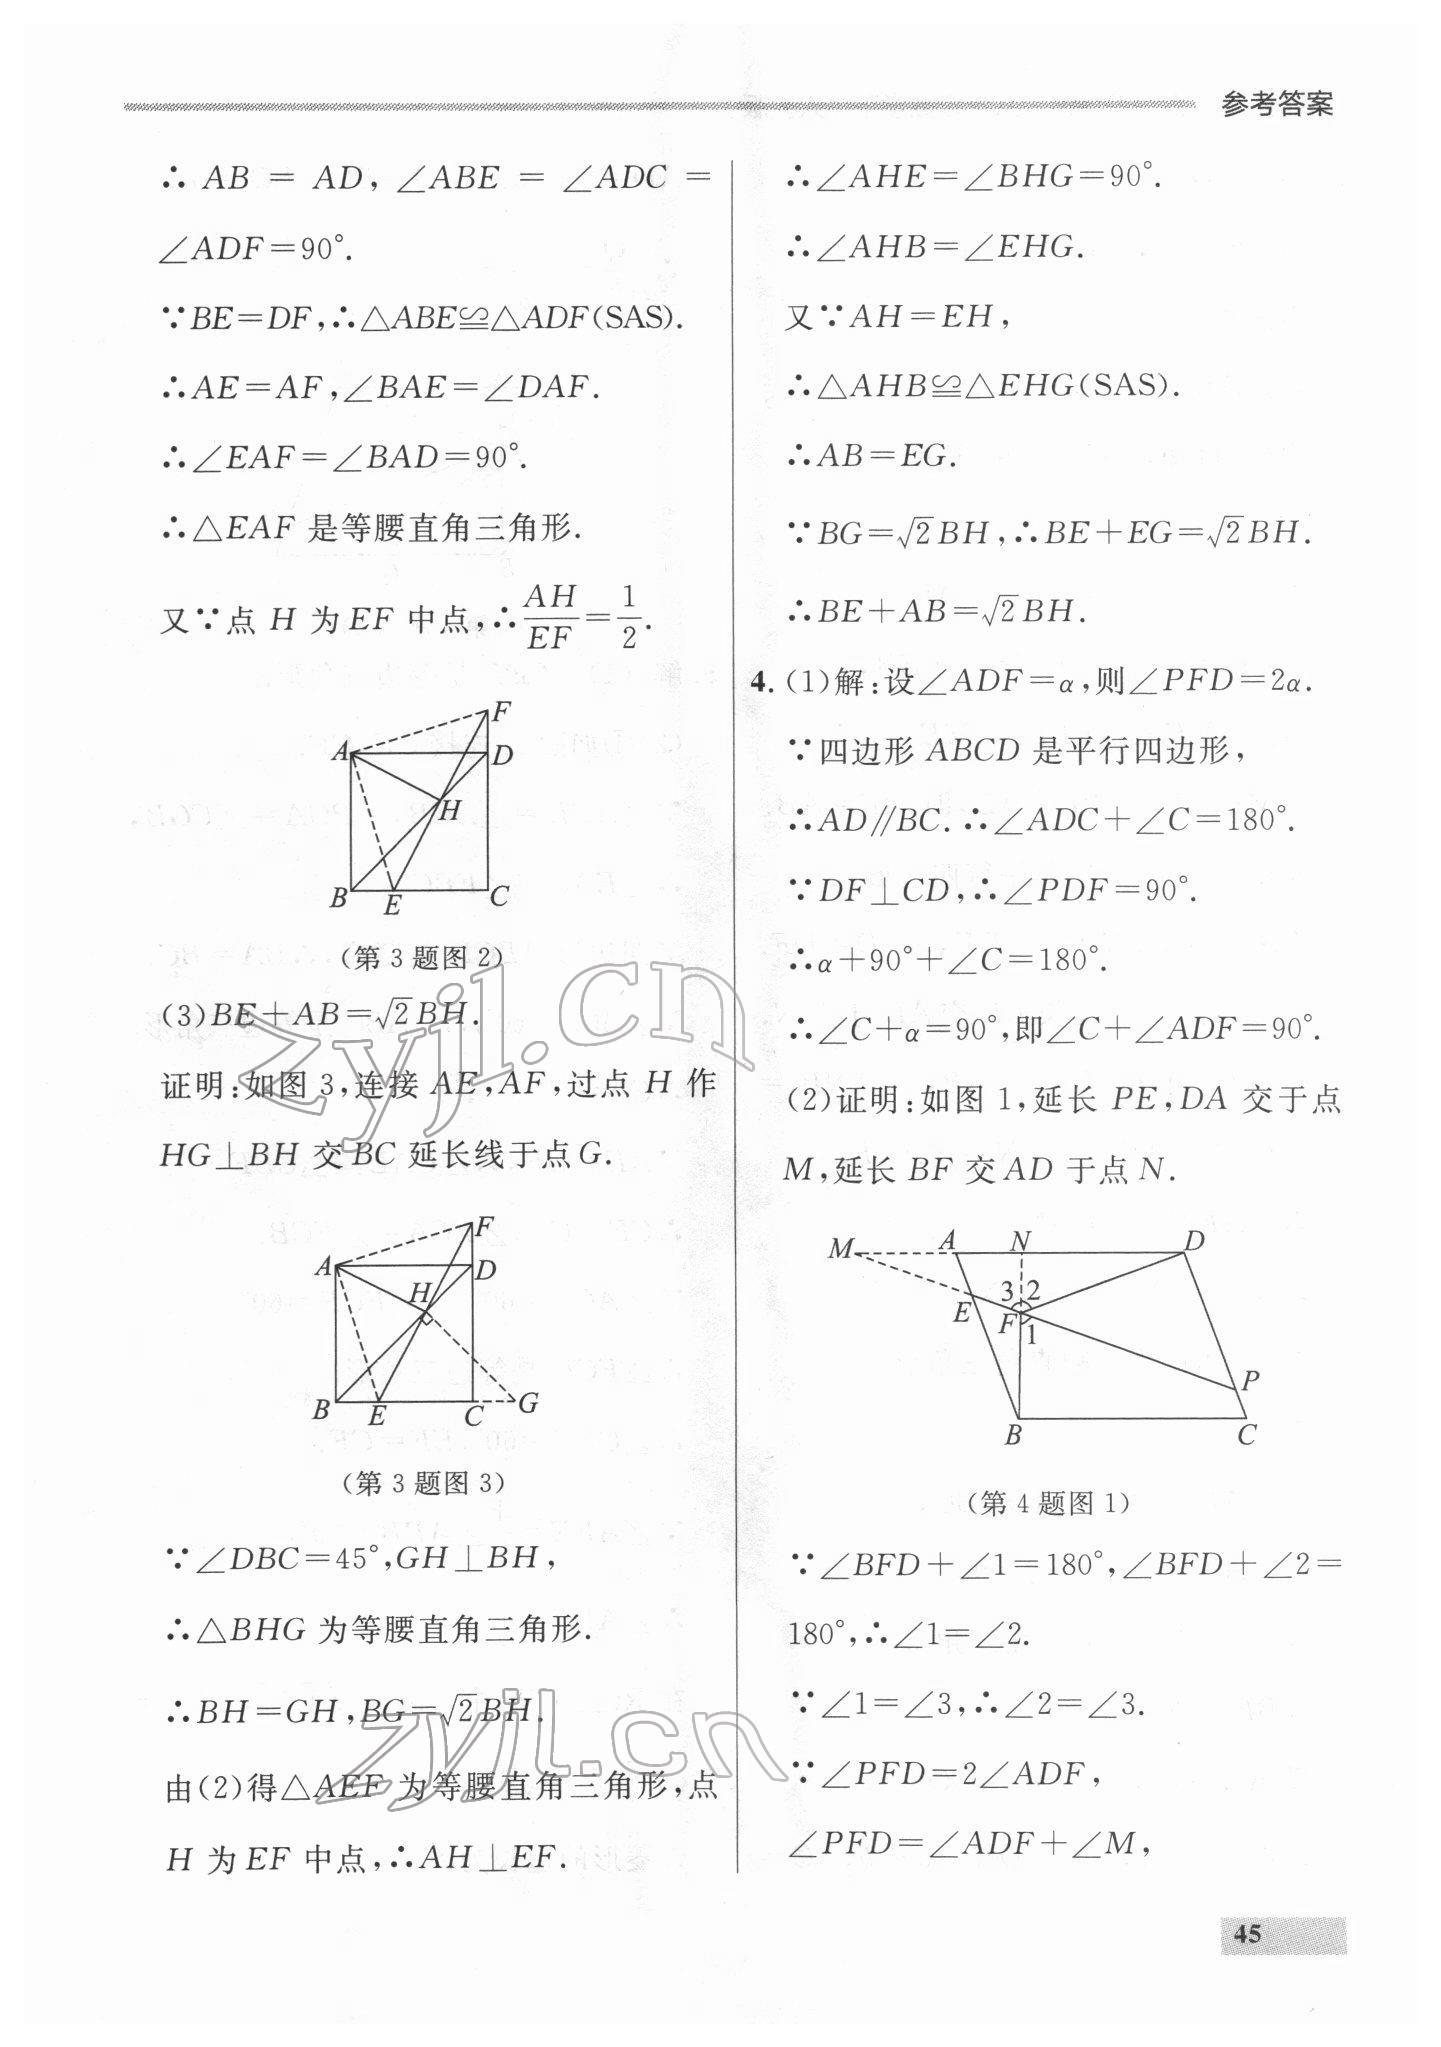 参考答案
∴ AB = AD, ∠ABE = ∠ADC =
∠ADF=90°.
∵BE=DF,∴△ABE≌△ADF(SAS).
∴AE=AF,∠BAE=∠DAF.
∴∠EAF=∠BAD=90°.
∴△EAF 是等腰直角三角形.
又∵点 H 为 EF 中点,∴AH/EF=1/2.
F
A
D
H
B
E
C
(第 3 题图 2)
(3)BE+AB=√2BH.
证明:如图 3,连接 AE,AF,过点 H 作
HG⊥BH 交 BC 延长线于点 G.
F
A
D
H
B
E
C
G
(第 3 题图 3)
∵∠DBC=45°,GH⊥BH,
∴△BHG 为等腰直角三角形.
∴BH=GH,BG=√2BH.
由(2)得△AEF 为等腰直角三角形,点
H 为 EF 中点,∴AH⊥EF.
∴∠AHE=∠BHG=90°.
∴∠AHB=∠EHG.
又∵AH=EH,
∴△AHB≌△EHG(SAS).
∴AB=EG.
∵BG=√2BH,∴BE+EG=√2BH.
∴BE+AB=√2BH.
4.(1)解:设∠ADF=α,则∠PFD=2α.
∵四边形 ABCD 是平行四边形,
∴AD∥BC.∴∠ADC+∠C=180°.
∵DF⊥CD,∴∠PDF=90°.
∴α+90°+∠C=180°.
∴∠C+α=90°,即∠C+∠ADF=90°.
(2)证明:如图 1,延长 PE,DA 交于点
M,延长 BF 交 AD 于点 N.
M
A
N
D
3
2
E
F
1
P
B
C
(第 4 题图 1)
∵∠BFD+∠1=180°,∠BFD+∠2=
180°,∴∠1=∠2.
∵∠1=∠3,∴∠2=∠3.
∵∠PFD=2∠ADF,
∠PFD=∠ADF+∠M,
45
zyjl.cn
zyjl.cn